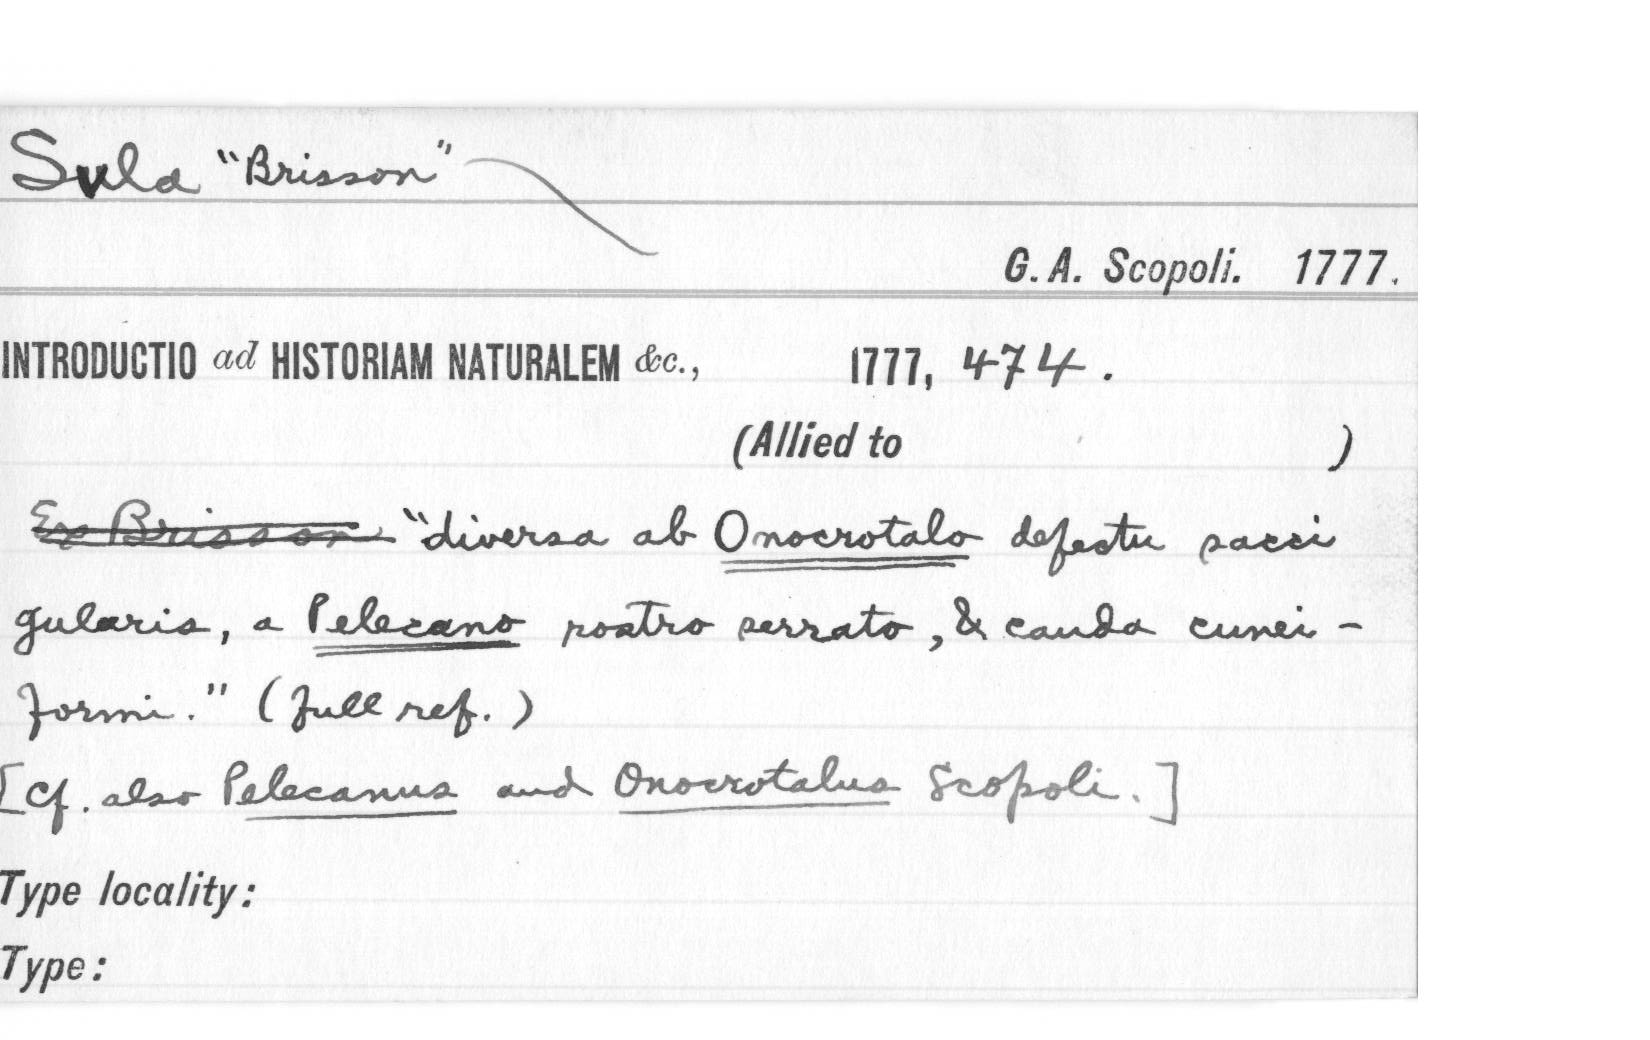 Sula "Brisson"
G. A. Scopoli. 1777.
INTRODUCTIO ad HISTORIAM NATURALEM &c., 1777, 474.
(Allied to )
Ex Brisson "diversa ab Onocrotalo defectu sacci
gularis, a Pelecano rostro serrato, & cauda cunei-
formi." (full ref.)
[Cf. also Pelecanus and Onocrotalus Scopoli.]
Type locality:
Type: